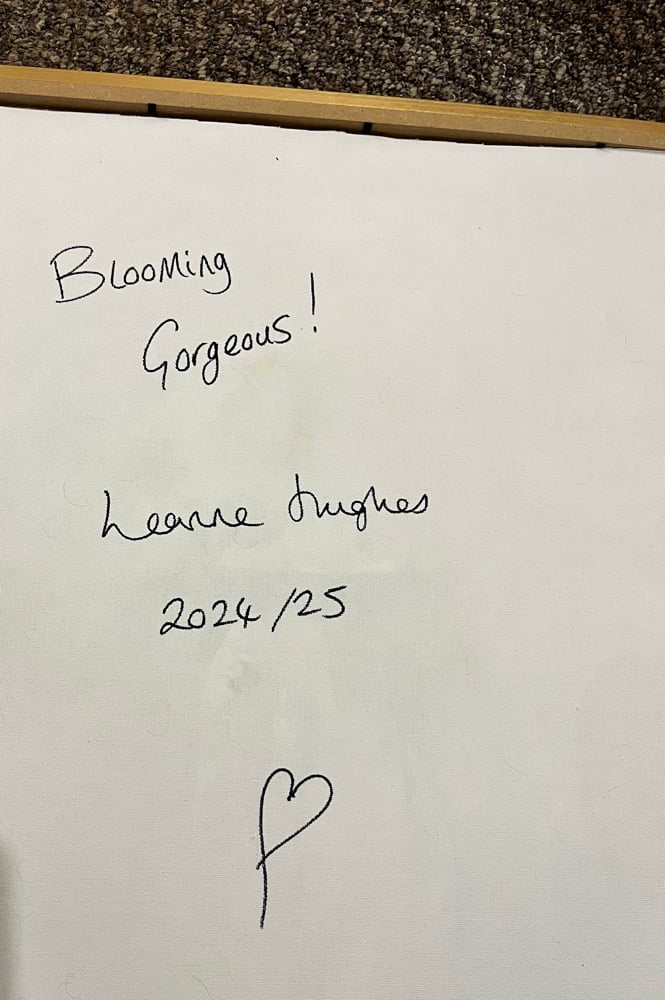 Blooming
Gorgeous!
Leanne Hughes
2024/25